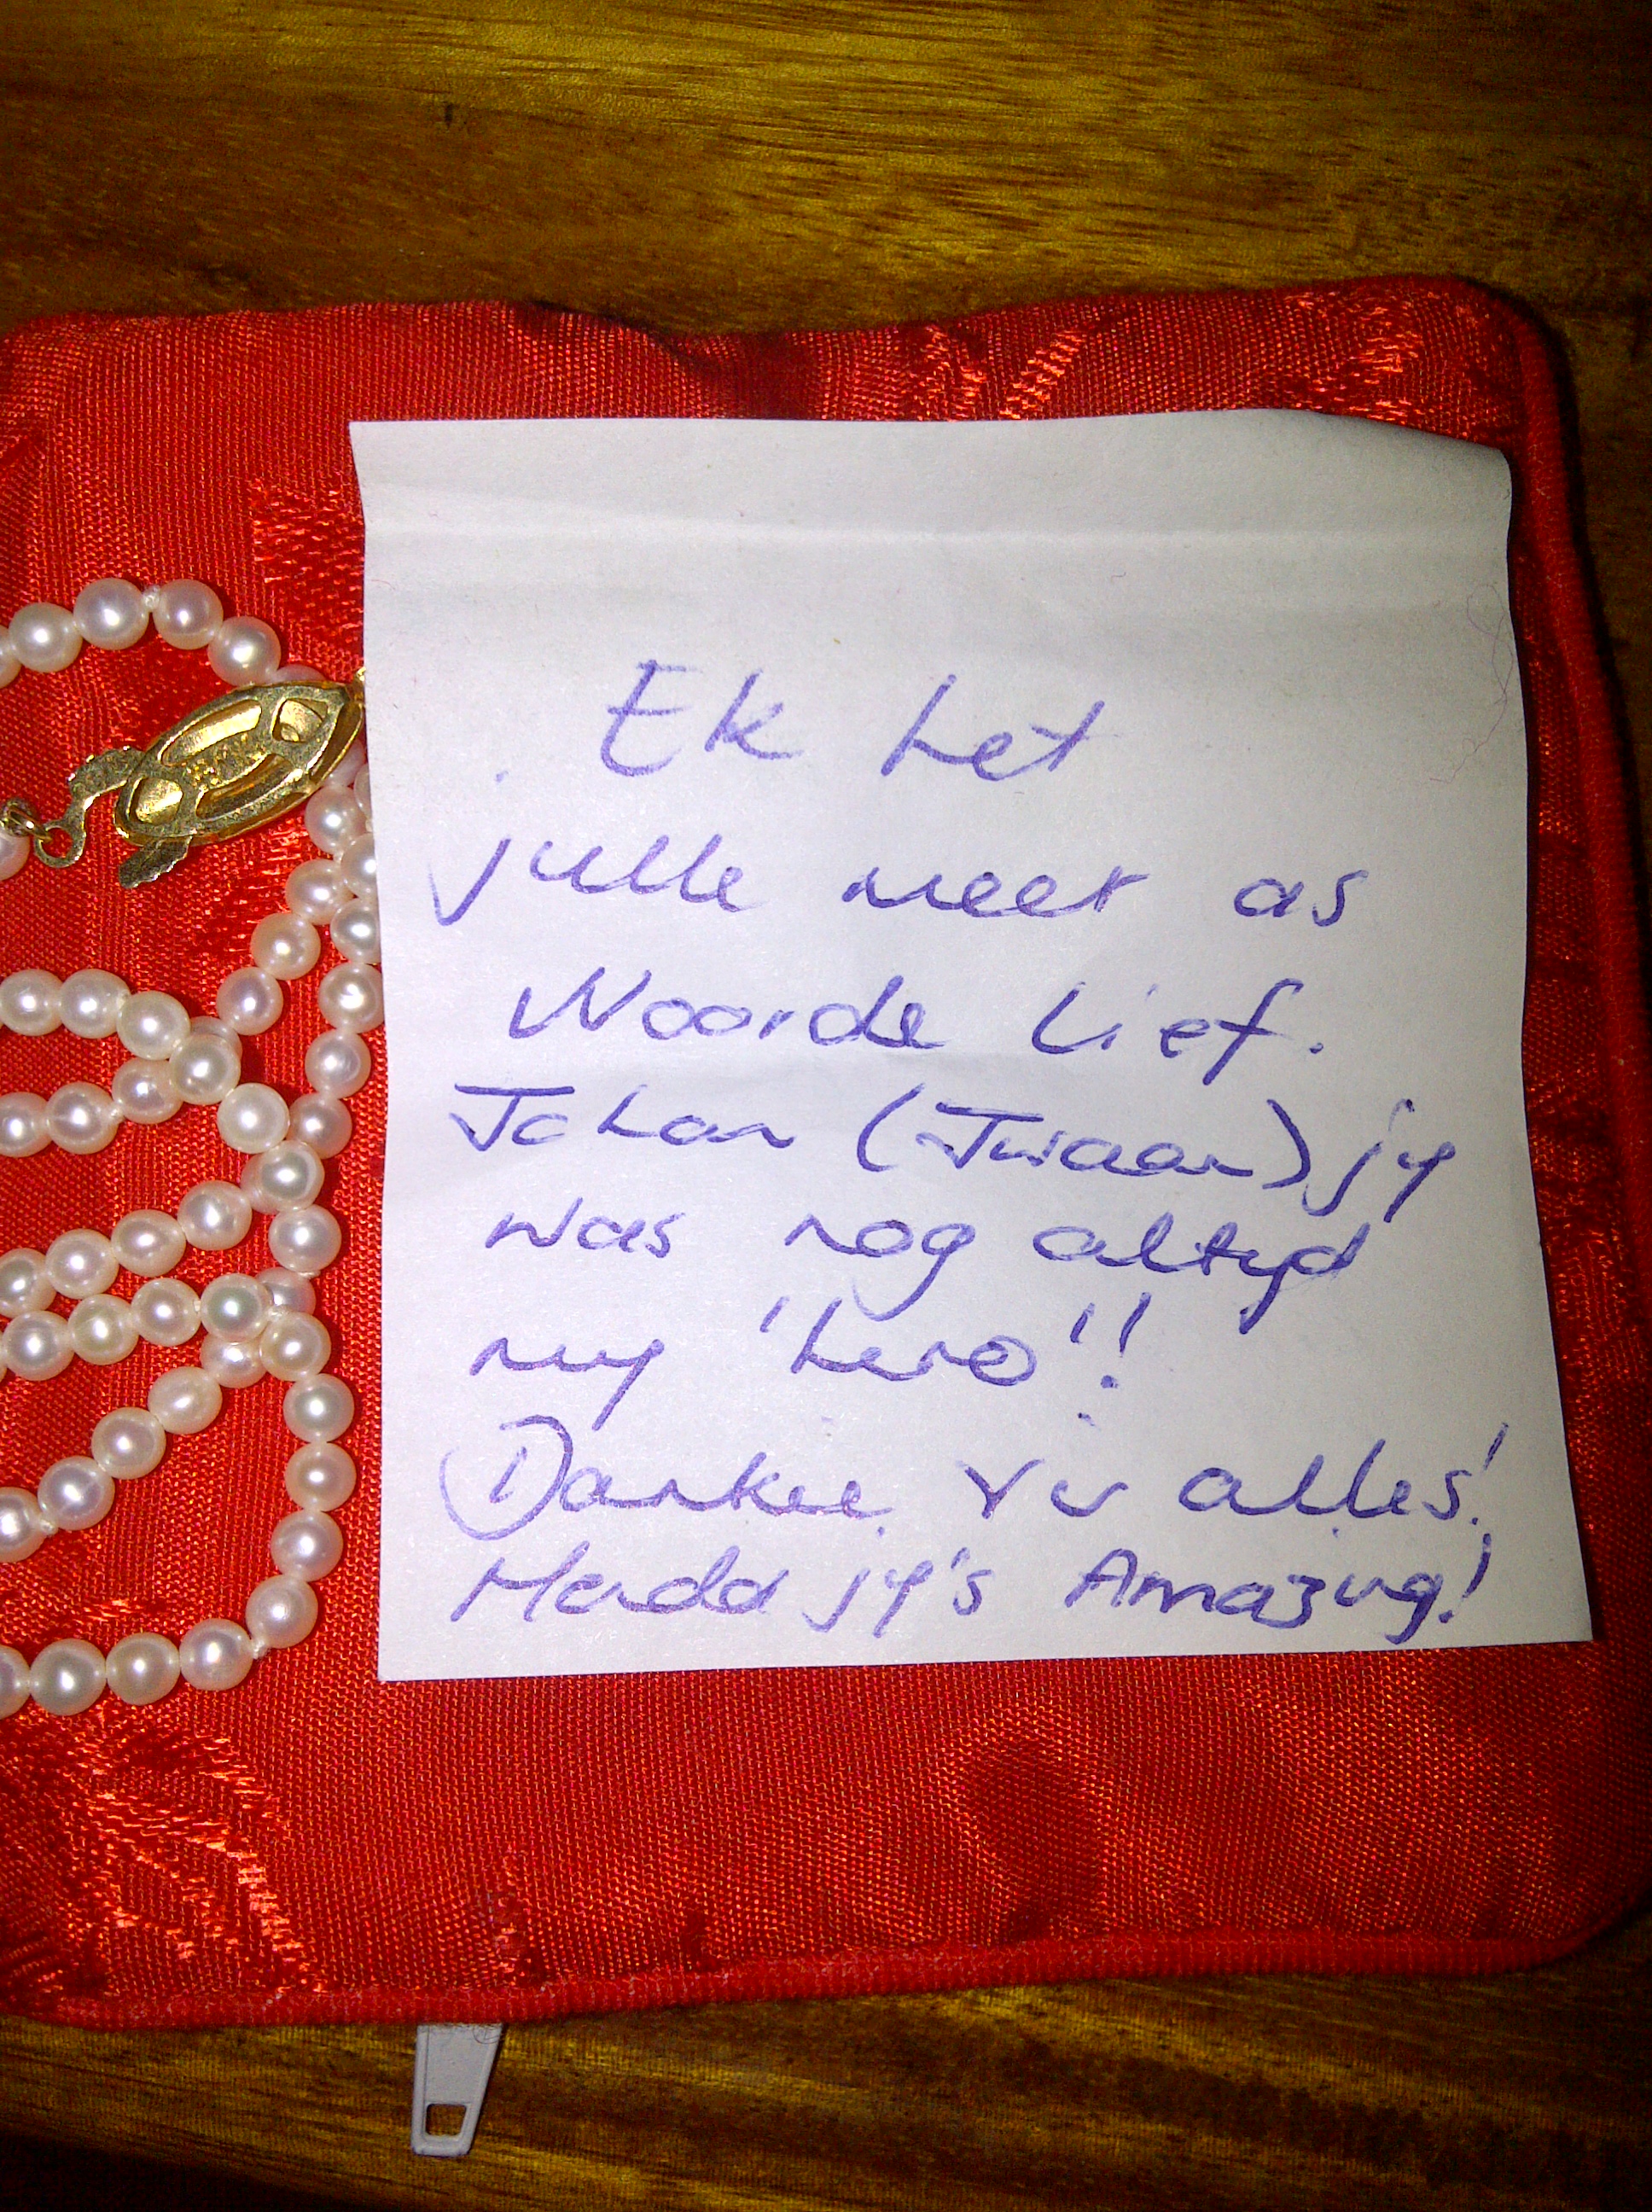 Ek het
julle meer as
Woorde lief.
Johan (Twaan) jy
was nog altyd
my 'hero'!
Dankie vir alles!
jy's Amazing!